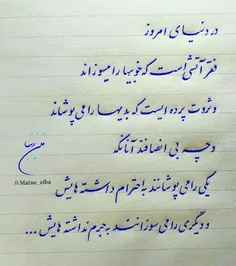 در دنیای امروز
فقر آتشی است که خوبیها را میسوزاند
و ثروت پرده ایست که بدیها را می پوشاند
و چه بی انصافند آنانکه
یکی را می پوشانند به احترام داشته هایش
و دیگری را می سوزانند به جرم نداشته هایش ...
@Matne_ziba